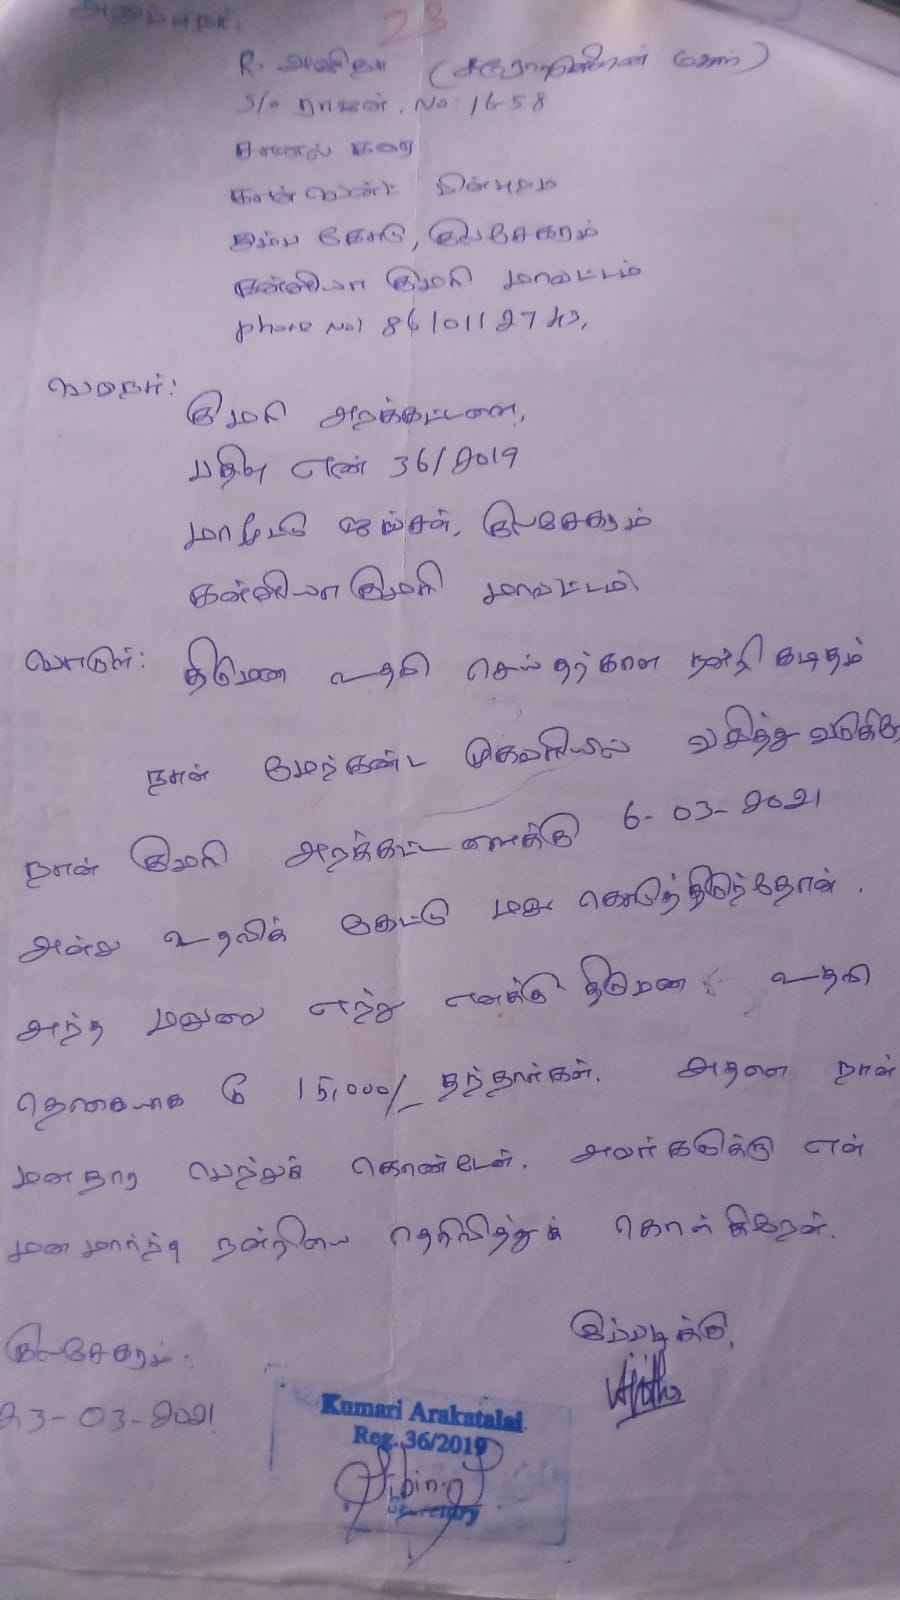 அனுப்புநர்:
23
R. அஜிதா
S/o ராஜன், No: 16-58
சானல் கரை
கான்வென்ட் பின்புறம்
குலசேகரம்
கன்னியாகுமரி மாவட்டம்
Phone No: 8610112743,
பெறுநர்:
குமரி அறக்கட்டளை,
பதிவு எண் 36/2019
ஜங்சன், குலசேகரம்
கன்னியாகுமரி மாவட்டம்.
பொருள்: திருமண உதவி செய்தற்கான நன்றி கடிதம்
நான் மேற்கண்ட முகவரியில் வசித்து
நான் குமரி அறக்கட்டளைக்கு 6-03-2021
அன்று உதவிக் கேட்டு மனு கொடுத்திருந்தேன்.
அந்த மனுவை ஏற்று எனக்கு திருமண உதவி
தொகையாக ரூ 15,000/- தந்தார்கள். அதனை நான்
மனதார பெற்றுக் கொண்டேன். அவர்களுக்கு என்
மனமார்ந்த நன்றியை தெரிவித்துக் கொள்கிறேன்.
இப்படிக்கு,
குலசேகரம்.
23-03-2021
Kumari Arakatalai
Reg. 36/2019
Secretary